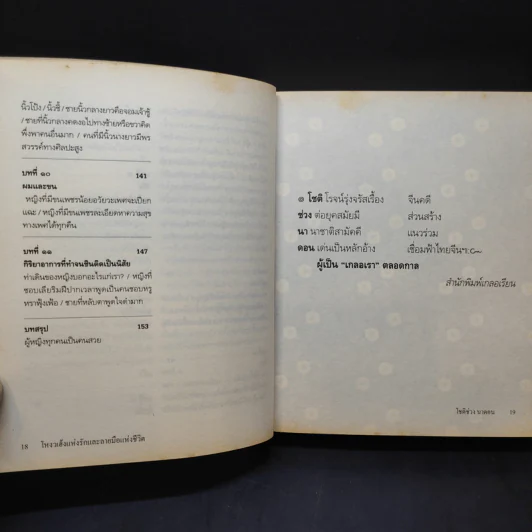 นิ้วโป้ง / นิ้วชี้ / ชายนิ้วกลางยาวคือจอมเจ้าชู้
/ ชายที่นิ้วกลางคดงอไปทางซ้ายหรือขวาคิด
พึ่งพาคนอื่นมาก / คนที่มีนิ้วนางยาวมีพร
สวรรค์ทางศิลปะสูง
บทที่ ๑๐ 141
ผมและขน
หญิงที่มีขนเพชรน้อยอวัยวะเพศจะเปียก
แฉะ / หญิงที่มีขนเพชรละเอียดหาความสุข
ทางเพศได้ทุกคืน
บทที่ ๑๑ 147
กิริยาอาการที่ทำจนชินติดเป็นนิสัย
ท่าเดินของหญิงบอกอะไรแก่เรา? / หญิงที่
ชอบเลียริมฝีปากเวลาพูดเป็นคนชอบหรู
หราฟุ้งเฟ้อ / ชายที่หลับตาพูดใจดำมาก
บทสรุป 153
ผู้หญิงทุกคนเป็นคนสวย
18 โหงวเฮ้งแห่งรักและลายมือแห่งชีวิต
๏ โชติ โรจน์รุ่งจรัสเรื้อง จีนคดี
ช่วง ต่อยุคสมัยมี ส่วนสร้าง
นา นาชาติสามัคคี แนวร่วม
ตอน เด่นเป็นหลักอ้าง เชื่อมฟ้าไทยจีนฯ๛
ผู้เป็น "เกลอเรา" ตลอดกาล
สำนักพิมพ์เกลอเรียน
โชติช่วง นาดอน 19